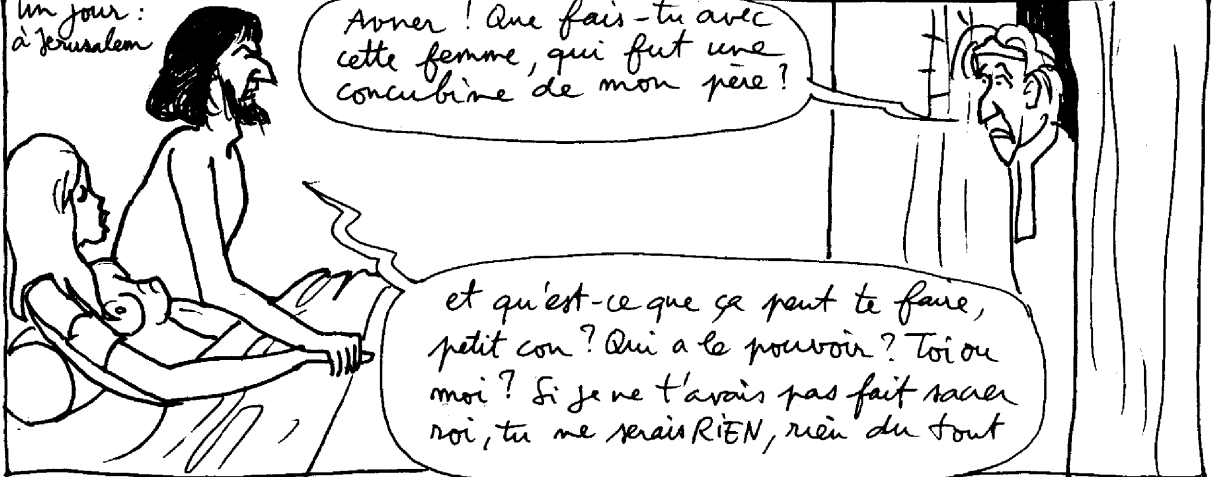 Un jour :
à Jerusalem
Avner ! Que fais-tu avec
cette femme, qui fut une
concubine de mon père ?
et qu'est-ce que ça peut te faire,
petit con ? Qui a le pouvoir ? Toi ou
moi ? Si je ne t'avais pas fait sacrer
roi, tu ne serais RIEN, rien du tout